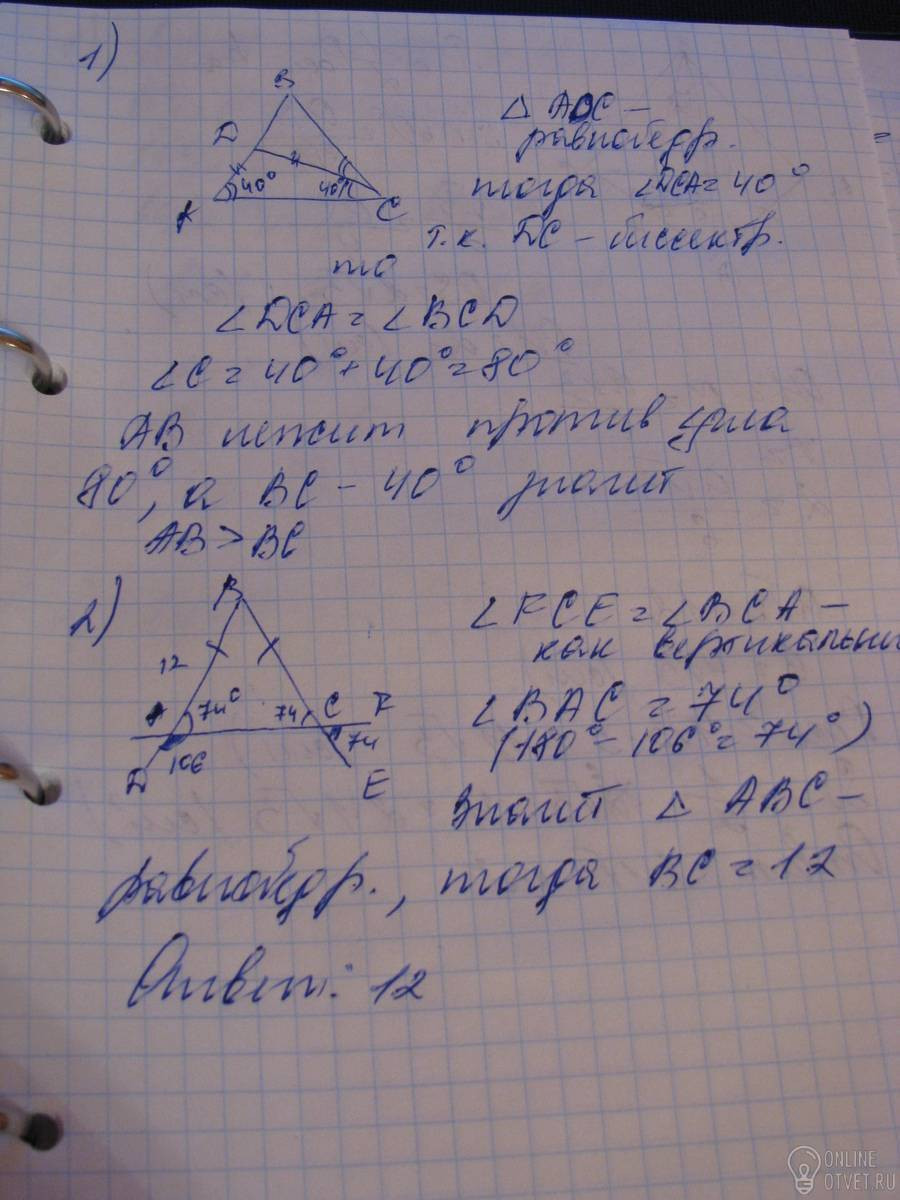 1)
B
D
40°
40°
A
C
△ ADC —
равнобедр.
тогда ∠DCA = 40°
т.к. DC – биссектр.
то
∠DCA = ∠BCD
∠C = 40° + 40° = 80°
AB лежит против угла
80°, а BC – 40° значит
AB > BC
2)
B
12
A
74°
74
C
F
74
106
D
E
∠FCE = ∠BCA —
как вертикальны
∠BAC = 74°
(180° – 106° = 74°)
Значит △ ABC –
равнобедр., тогда BC = 12
Ответ: 12
ONLINE
OTVET.RU